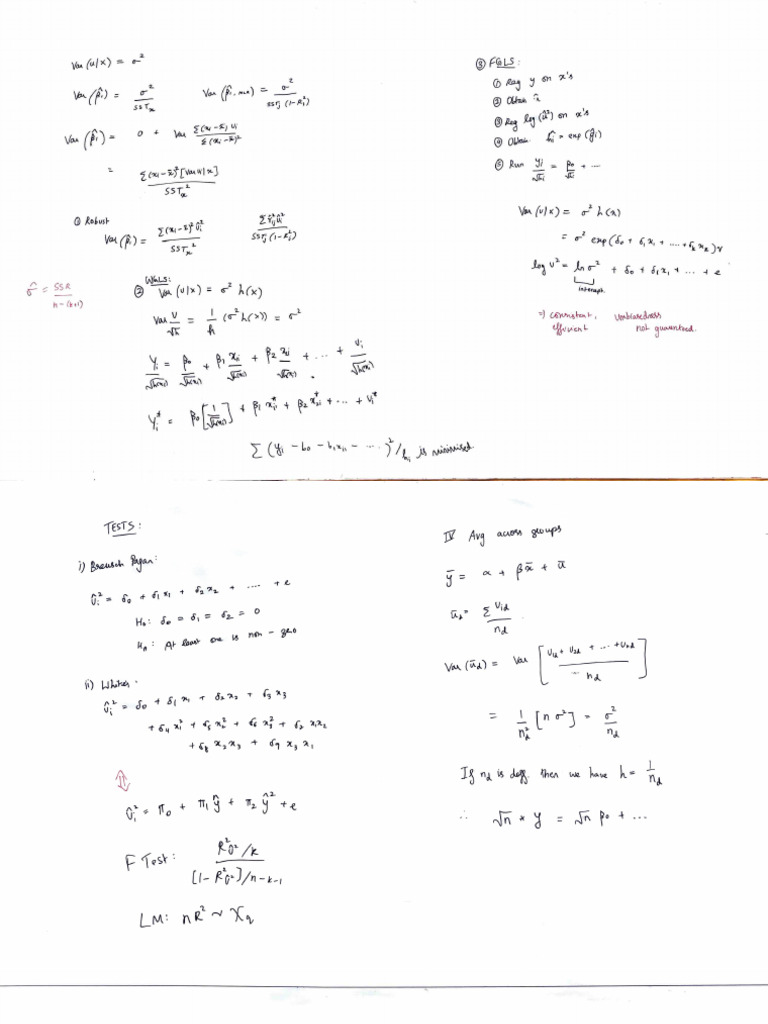 Var (u/x) = σ²
Var (β̂₁) = σ² / SSTₓ    Var (β̂₁,MLR) = σ² / SSTⱼ (1 - Rⱼ²)
Var (β̂₁) = 0 + Var Σ(xᵢ - x̄) uᵢ / Σ(xᵢ - x̄)²
= Σ(xᵢ - x̄)² [Var u/x] / SSTₓ²
① Robust
Var (β̂₁) = Σ(xᵢ - x̄)² ûᵢ² / SSTₓ²    Σ r̂ᵢⱼ² ûᵢ² / SSTⱼ (1 - Rⱼ²)
σ̂ = SSR / n - (k+1)
WGLS:
② Var (u/x) = σ² h(x)
Var u/√h = 1/h (σ² h(x)) = σ²
Yᵢ/√h(xᵢ) = β₀/√h(xᵢ) + β₁ xᵢᵢ/√h(xᵢ) + β₂ xᵢᵢ/√h(xᵢ) + ... + uᵢ/√h(xᵢ)
Yᵢ* = β₀ [1/√h(xᵢ)] + β₁ xᵢ₁* + β₂ x₂ᵢ* + ... + uᵢ*
Σ (yᵢ - b₀ - b₁xᵢ₁ - ....)² / hᵢ is minimised
③ FGLS:
① Reg y on x's
② Obtain û
③ Reg log(û²) on x's
④ Obtain ĥᵢ = exp(ĝᵢ)
⑤ Run yᵢ/√ĥᵢ = β₀/√ĥᵢ + ...
Var (u/x) = σ² h(x)
= σ² exp(δ₀ + δ₁x₁ + .... + δₖxₖ) v
log u² = ln σ² + δ₀ + δ₁x₁ + ... + e
intercept
⇒ consistent, unbiasedness
efficient not guaranteed.
TESTS:
i) Breusch Pagan:
ûᵢ² = δ₀ + δ₁x₁ + δ₂x₂ + .... + e
H₀: δ₀ = δ₁ = δ₂ = 0
Hₐ: At least one is non-zero
ii) Whites:
ûᵢ² = δ₀ + δ₁x₁ + δ₂x₂ + δ₃x₃
+ δ₄x₁² + δ₅x₂² + δ₆x₃² + δ₇x₁x₂
+ δ₈x₂x₃ + δ₉x₃x₁
⇕
ûᵢ² = π₀ + π₁ŷ + π₂ŷ² + e
F Test: R²û² / k / [1 - R²û²] / n-k-1
LM: nR² ~ χq
IV Avg across groups
ȳ = α + βx̄ + ū
ū_d = Σ u_id / n_d
Var (ū_d) = Var [u₁d + u₂d + ... + u_nd / n_d]
= 1/n_d² [n σ²] = σ²/n_d
If n_d is diff, then we have h = 1/n_d
∴ √n * y = √n β₀ + ...